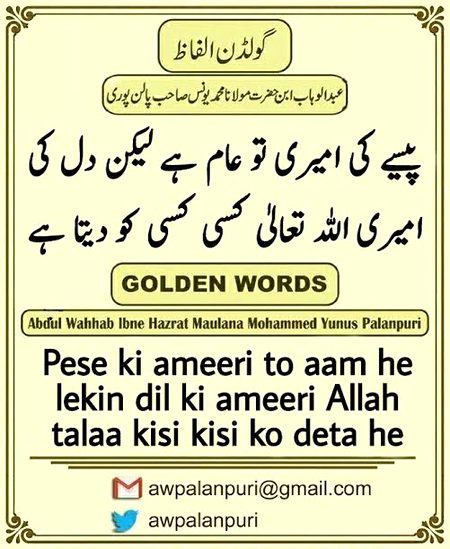 گولڈن الفاظ
عبدالوہاب ابن حضرت مولانا محمد یونس صاحب پالن پوری
پیسے کی امیری تو عام ہے لیکن دل کی
امیری اللہ تعالیٰ کسی کسی کو دیتا ہے
GOLDEN WORDS
Abdul Wahhab Ibne Hazrat Maulana Mohammed Yunus Palanpuri
Pese ki ameeri to aam he
lekin dil ki ameeri Allah
talaa kisi kisi ko deta he
awpalanpuri@gmail.com
awpalanpuri